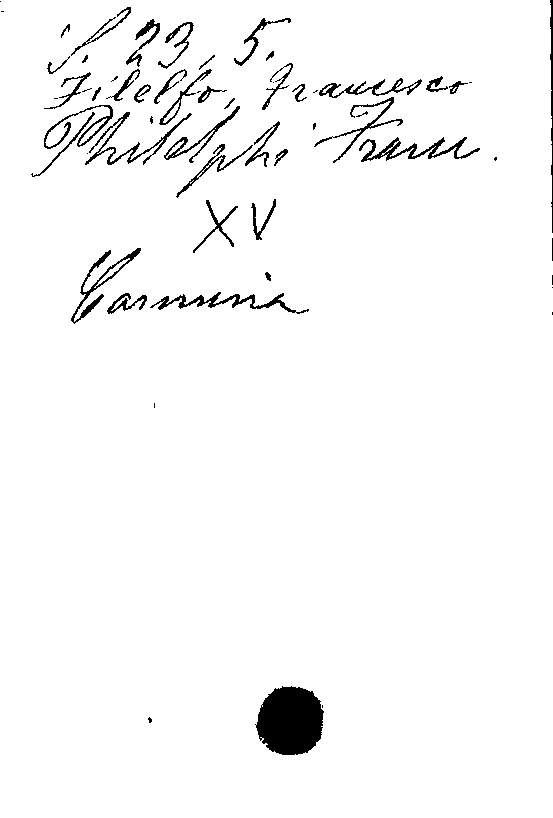 S. 23, 5.
Filelfo, Francesco
Philelphi Franc.
XV
Carmina